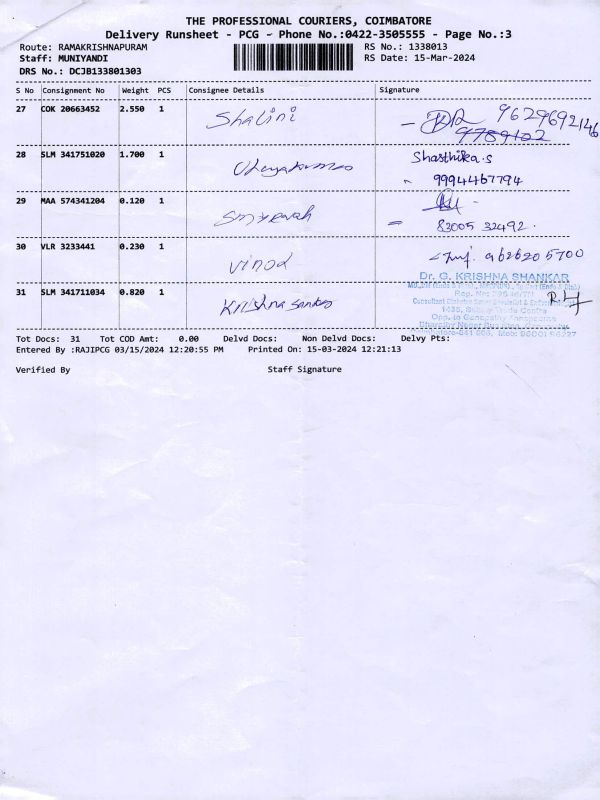 THE PROFESSIONAL COURIERS, COIMBATORE
Delivery Runsheet - PCG - Phone No.:0422-3505555 - Page No.:3
Route: RAMAKRISHNAPURAM
RS No.: 1338013
Staff: MUNIYANDI
RS Date: 15-Mar-2024
DRS No.: DCJB133801303
S No Consignment No Weight PCS Consignee Details Signature
27 COK 20663452 2.550 1 Shalini 9629692146
9789122
28 SLM 341751020 1.700 1 Shasthika.s
9994467794
29 MAA 574341204 0.120 1
83005 32492.
30 VLR 3233441 0.230 1 vinod 9626205700
31 SLM 341711034 0.820 1 Krishna Sankar
Dr. G. KRISHNA SHANKAR
Tot Docs: 31 Tot COD Amt: 0.00 Delvd Docs: Non Delvd Docs: Delvy Pts:
Entered By :RAJIPCG 03/15/2024 12:20:55 PM Printed On: 15-03-2024 12:21:13
Verified By Staff Signature